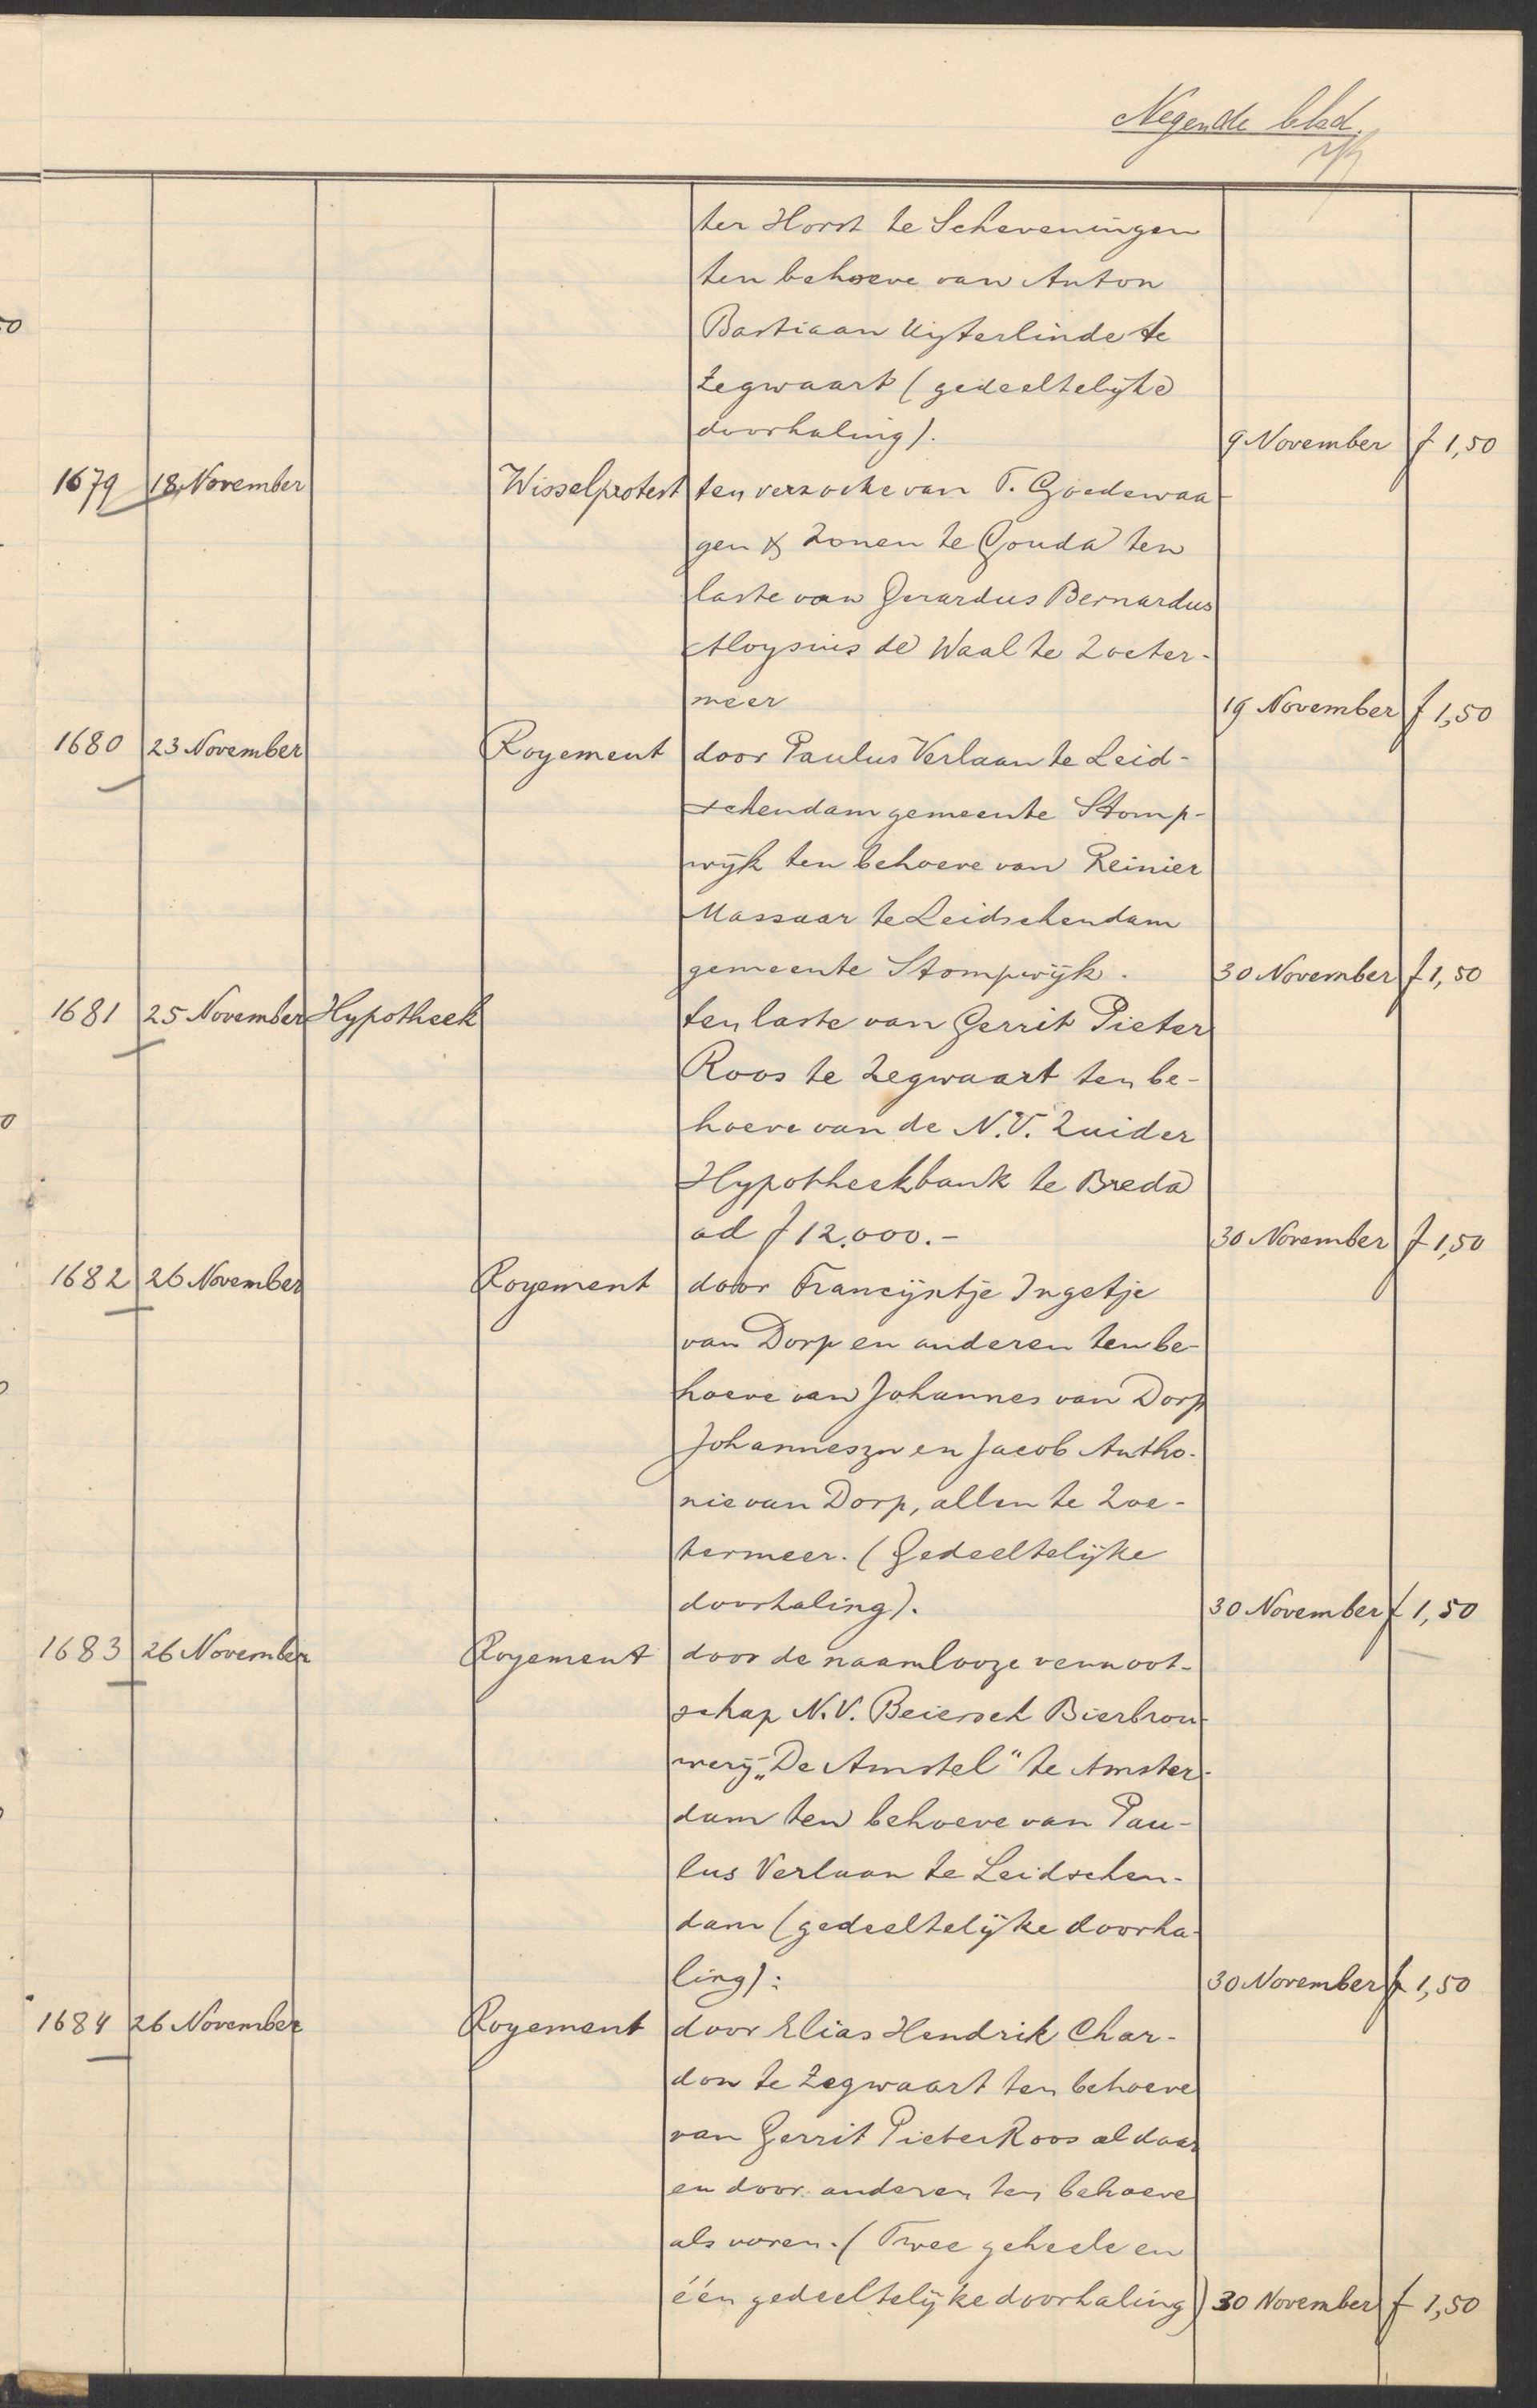 Negende blad.
ter Horst te Scheveningen
ten behoeve van Anton
Bastiaan Uijterlinde te
Zegwaart (gedeeltelijke
doorhaling). 9 November f 1,50
1679 18 November Wisselprotest ten verzoeke van T. Goedewaa-
gen & Zonen te Gouda ten
laste van Gerardus Bernardus
Aloysius de Waal te Zoeter-
meer 19 November f 1,50
1680 23 November Royement door Paulus Verlaan te Leid-
schendam gemeente Stomp-
wijk ten behoeve van Reinier
Massaar te Leidschendam
gemeente Stompwijk. 30 November f 1,50
1681 25 November Hypotheek ten laste van Gerrit Pieter
Roos te Zegwaart ten be-
hoeve van de N.V. Zuider
Hypotheekbank te Breda
ad f 12.000.- 30 November f 1,50
1682 26 November Royement door Francijntje Ingetje
van Dorp en anderen ten be-
hoeve van Johannes van Dorp
Johanneszn en Jacob Antho-
nie van Dorp, allen te Zoe-
termeer. (Gedeeltelijke
doorhaling). 30 November f 1,50
1683 26 November Royement door de naamlooze vennoot-
schap N.V. Beiersch Bierbrou-
werij „De Amstel" te Amster-
dam ten behoeve van Pau-
lus Verlaan te Leidschen-
dam (gedeeltelijke doorha-
ling): 30 November f 1,50
1684 26 November Royement door Elias Hendrik Char-
don te Zegwaart ten behoeve
van Gerrit Pieter Roos aldaar
en door anderen ten behoeve
als voren. (Twee geheele en
één gedeeltelijke doorhaling) 30 November f 1,50